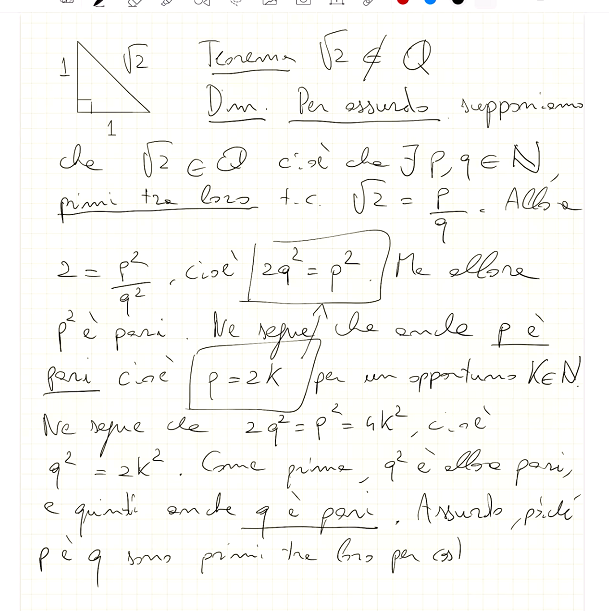 1 √2 Teorema √2 ∉ Q
1 Dim. Per assurdo supponiamo
che √2 ∈ Q cioè che ∃ p, q ∈ N,
primi tra loro t.c. √2 = p/q. Allora
2 = p²/q², cioè 2q² = p². Ma allora
p² è pari. Ne segue che anche p è
pari cioè p = 2k per un opportuno K ∈ N.
Ne segue che 2q² = p² = 4k², cioè
q² = 2k². Come prima, q² è allora pari,
e quindi anche q è pari. Assurdo, poiché
p e q sono primi tra loro per